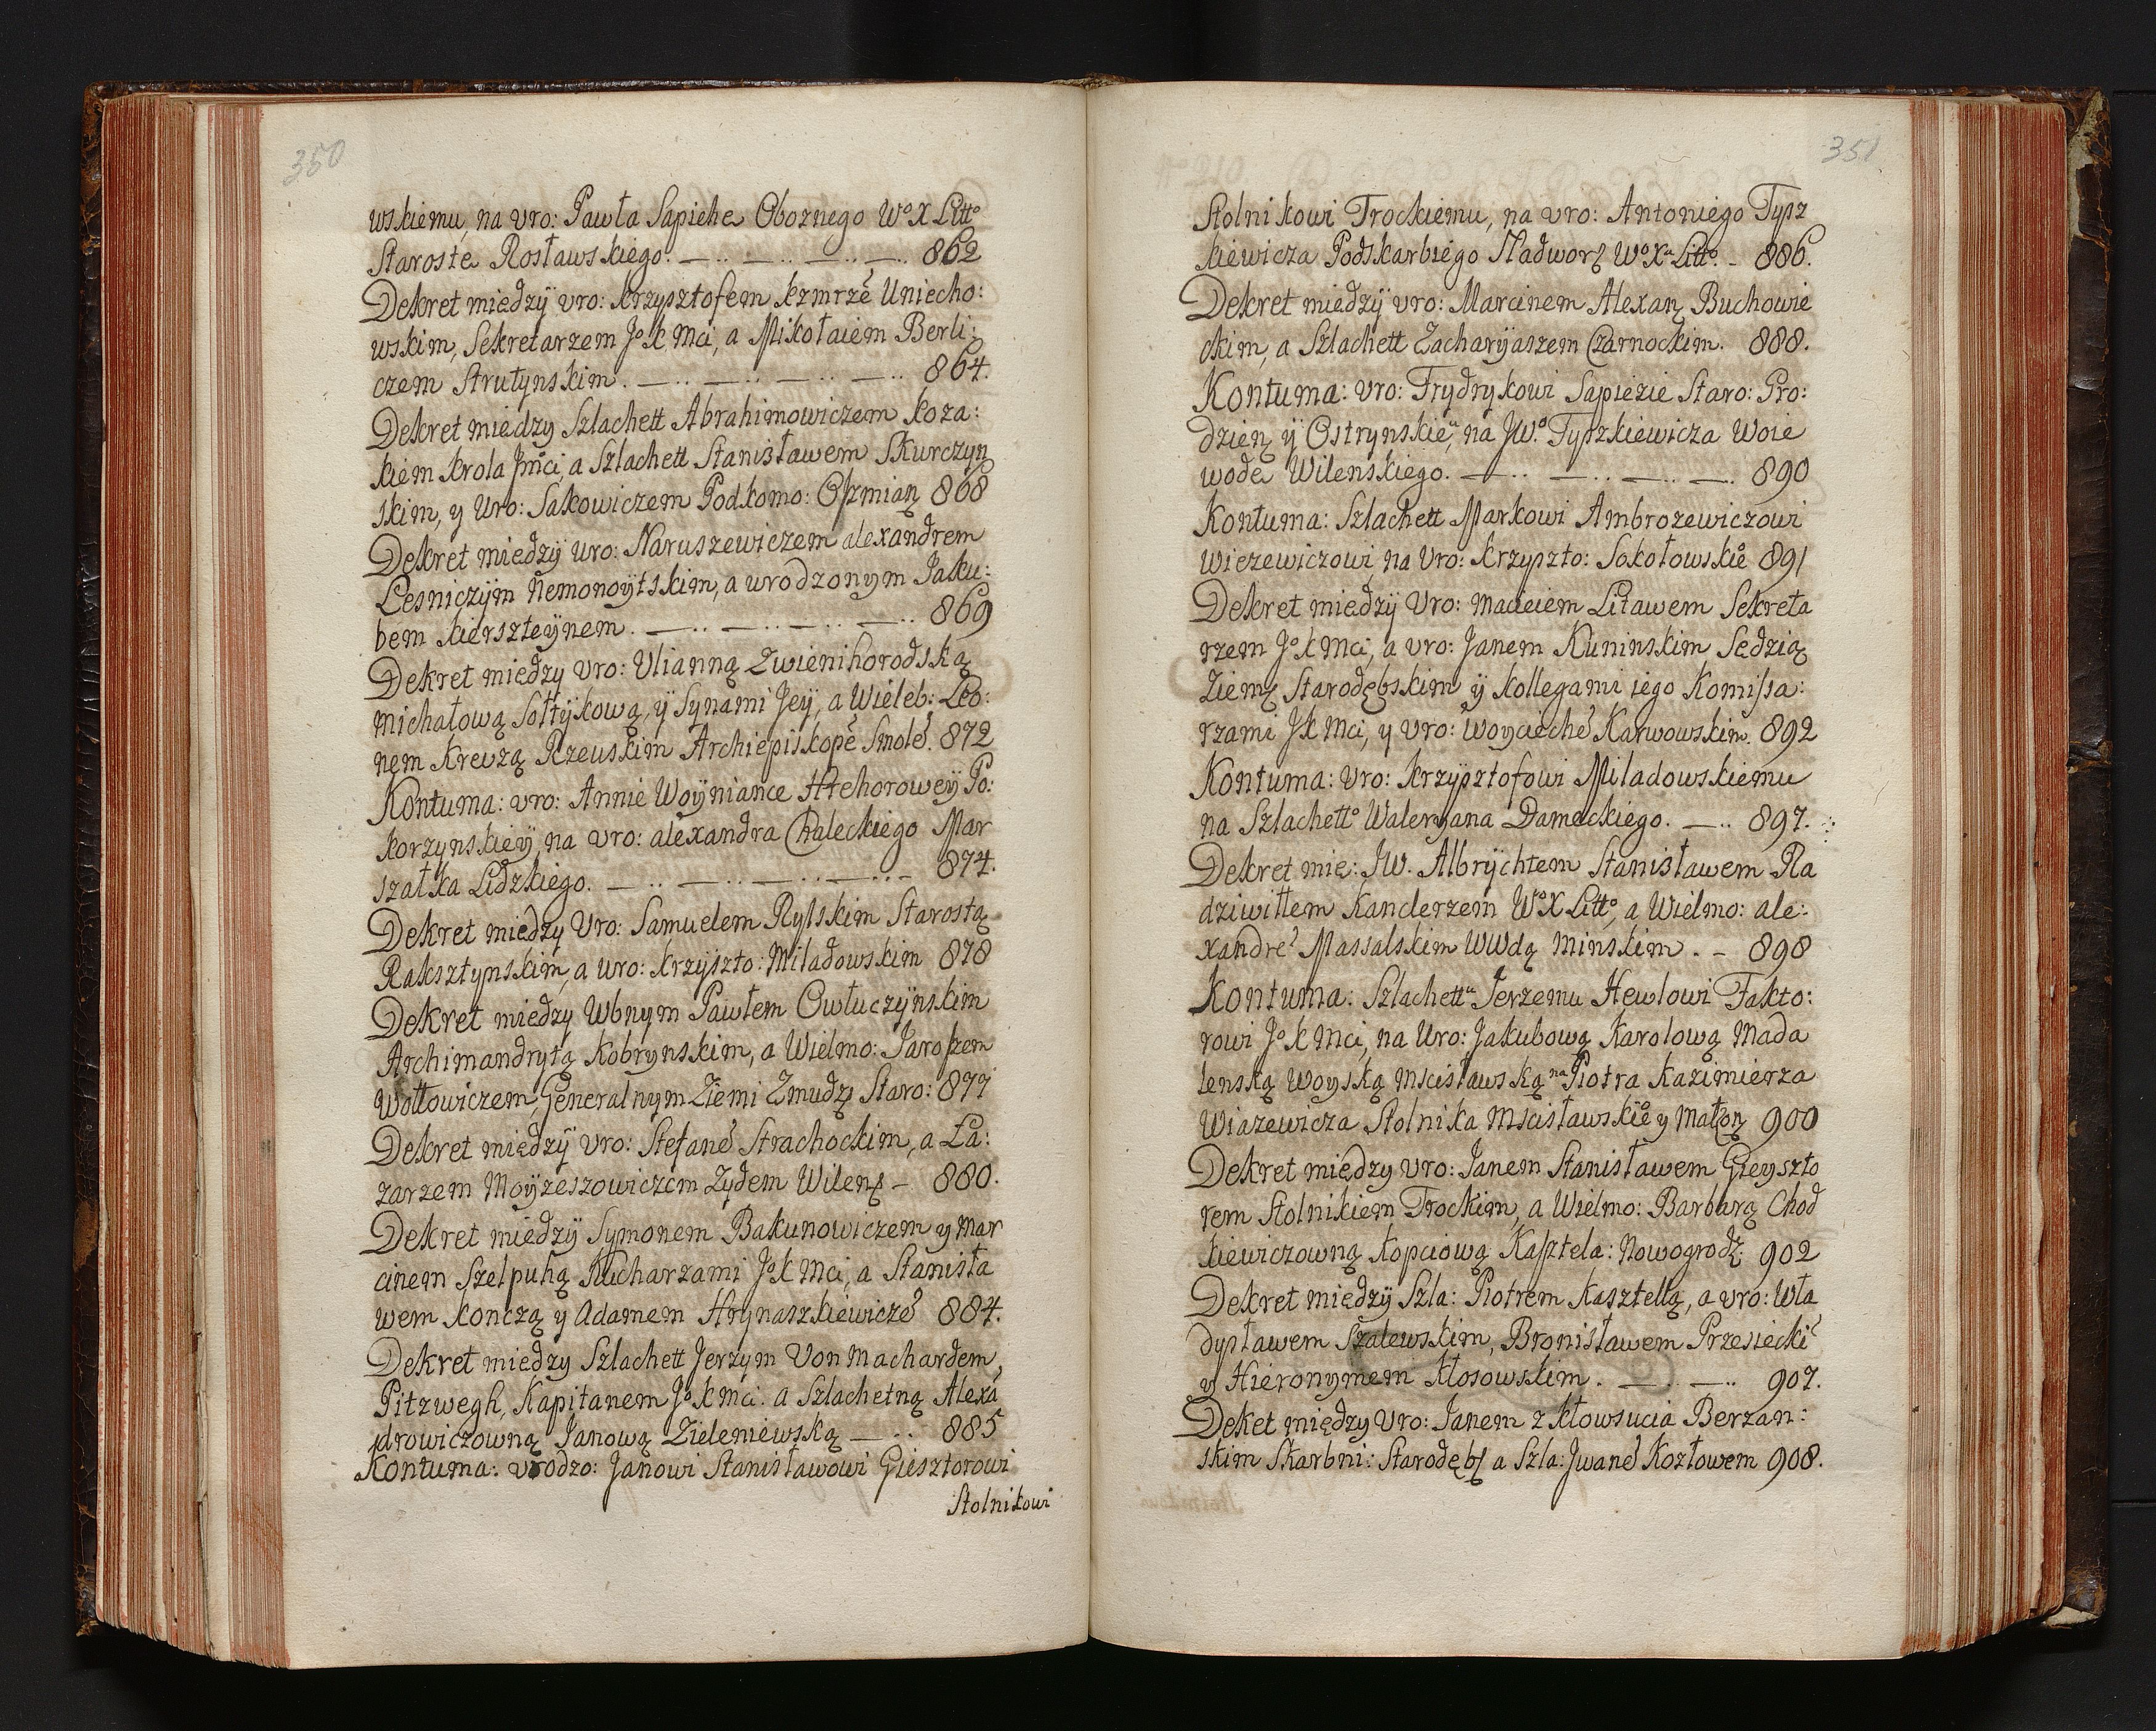 350
wskiemu, na vro: Pawła Sapiehe Oboznego Wº X Littº
Staroste Rosławskiego. — .. — .. — .. — .. 862
Dekret miedzÿ vro: Krzysztofem Kzmrzē Uniecho:
wskim, Sekretarzem Jº K Mci, a Mikołaiem Berli:
czem Strutynskim. — .. — .. — .. — .. 864.
Dekret miedzy Szlachett Abrahimowiczem Koza:
kiem Krola Jmci, a Szlachett Stanisławem Skurczyn
skim, y Uro: Sakowiczem Podkomo: Oszmian 868
Dekret miedzÿ uro: Naruszewiczem alexandrem
Lesniczÿm Nemonoÿtskim, a urodzonym Jaku:
bem Kierszteÿnem. — .. — .. — .. — .. 869
Dekret miedzy vro: Ulianną Zwienihorodską
Michałową Sołtÿkową, ÿ Synami Jeÿ, a Wieleb: Leo:
nem Kreuzą Rzeuskim Archiepiskopē Smolē. 872
Kontuma: vro: Annie Woÿniance Hrehoroweÿ Po:
korzynskieÿ, na vro: alexandra Chaleckiego Mar
szałka Lidzkiego. — .. — .. — .. — .. — 874.
Dekret miedzy Vro: Samuelem Rylskim Starostą
Raksztynskim, a uro: Krzyszto: Miladowskim 878
Dekret miedzy Wbnym Pawłem Owłuczÿnskim
Archimandrytą Kobrynskim, a Wielmo: Jaroszem
Wołłowiczem, Generalnym Ziemi Zmudz Staro: 877
Dekret miedzÿ vro: Stefanē Strachockim, a Ła:
zarzem Moÿzeszowiczem Zydem Wilen — 880.
Dekret miedzÿ Symonem Bakunowiczem y Mar
cinem Szelpuhą Kucharzami Jº K Mci, a Stanisła
wem Konczą y Adamem Hrynaszkiewiczē 884.
Dekret miedzy Szlachett Jerzym Von Machardem,
Pitzwegh, Kapitanem Jº K Mci. a Szlachetną Alexā
drowiczowną Janową Zieleniewską — .. 885
Kontuma: vrodzo: Janowi Stanisławowi Giesztorowi
Stolnikowi
351
Stolnikowi Trockiemu, na vro: Antoniego Tysz
kiewicza Podskarbiego Nadwor Wº Xª Littº. - 886.
Dekret miedzÿ vro: Marcinem Alexan Buchowie
ckim, a Szlachett Zacharÿaszem Czarnockim. 888.
Kontuma: vro: Frydrykowi Sapiezie Staro: Gro:
dzien ÿ Ostrynskieᵘ, na JWº. Tyszkiewicza Woie
wode Wilenskiego. — .. — .. — .. —. 890
Kontuma: Szlachett Markowi Ambrozewiczowi
Wiezewiczowi, na Vro: Krzyszto: Sokołowskiº 891
Dekret miedzÿ Vro: Macieiem Litawem Sekreta
rzem Jº K Mci, a vro: Janem Kuninskim Sędzią
Ziem Starodębskim ÿ Kollegami iego Komissa:
rzami JK Mci, y vro: Woyciechē Karwowskim. 892
Kontuma: Vro: Krzÿsztofowi Miladowskiemu
na Szlachettº Waleryana Dameckiego. — .. 897.
Dekret mię: JW. Albrÿchtem Stanisławem Ra
dziwiłłem Kanclerzem Wº X Littº, a Wielmo: ale:
xandrē Massalskim WWdą Minskim. - 898
Kontuma: Szlachettᵘ Jerzemu Hewlowi Fakto:
rowi Jº K Mci, na Uro: Jakubową Karolową Mada
lenską Woyską Mscisławską na Piotra Kazimierza
Wiazewicza Stolnika Mscisławskiº y Małzon 900
Dekret między vro: Janem Stanisławem Gieyszto
rem Stolnikiem Trockim, a Wielmo: Barbarą Chod
kiewiczowną Kopciową Kasztela: Nowogrodz: 902
Dekret międzÿ Szla: Piotrem Kasztellą, a vro: Wła
dysławem Szalewskim, Bronisławem Przesieckī
y Hieronymem Kłosowskim. — .. — .. 907.
Deket między Vro: Janem z Kłowsucia Berzan:
skim Skarbni: Starodęb a Szla: Jwanē Kozłowem 908.